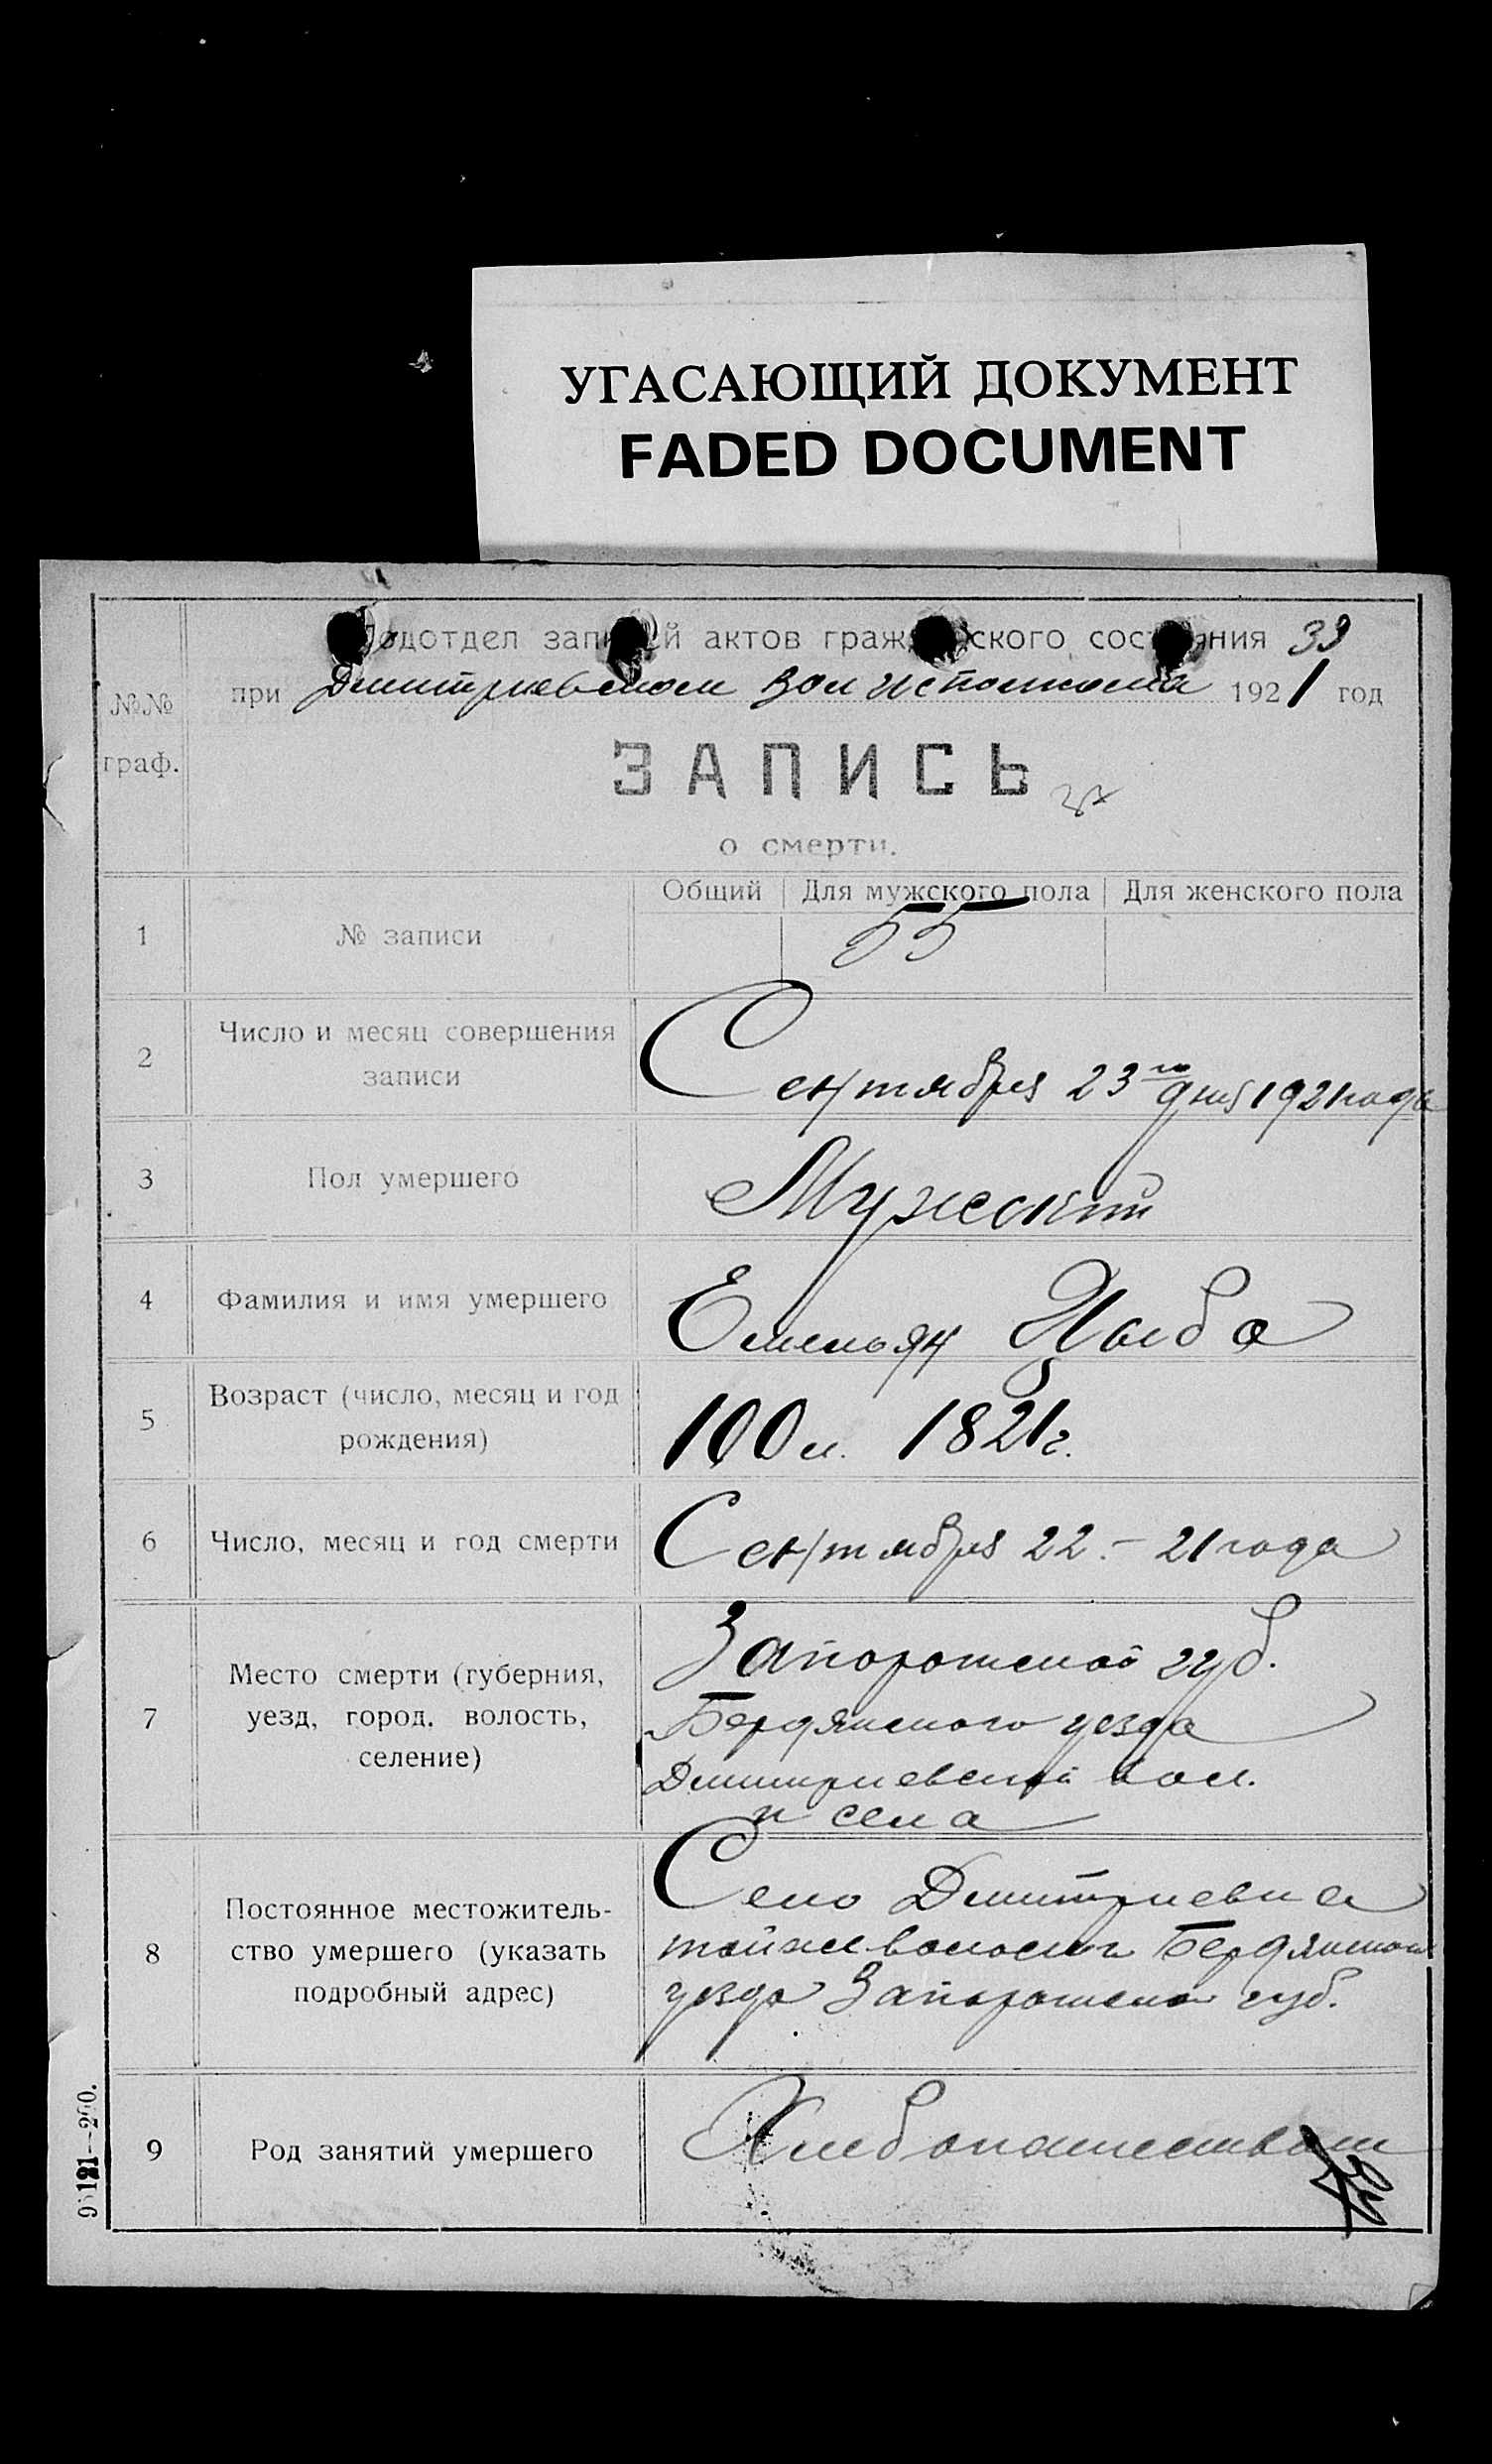 УГАСАЮЩИЙ ДОКУМЕНТ
FADED DOCUMENT
Подотдел записей актов гражданского состояния 33
№№ граф.
при Дмитриевском Волисполкома 1921 год
ЗАПИСЬ
о смерти.
Общий Для мужского пола Для женского пола
1 № записи 55
2 Число и месяц совершения
записи
Сентября 23го дня 1921 года
3 Пол умершего Мужеский
4 Фамилия и имя умершего Емельян Цыба
5 Возраст (число, месяц и год
рождения)
100 л. 1821 г.
6 Число, месяц и год смерти Сентября 22.– 21 года
7 Место смерти (губерния,
уезд, город, волость,
селение)
Запорожской губ.
Бердянского уезда
Дмитриевской вол.
и села
8 Постоянное местожитель-
ство умершего (указать
подробный адрес)
Село Дмитриевка
тойже волости Бердянском
уезда Запорожской губ.
9 Род занятий умершего Хлебопашеством